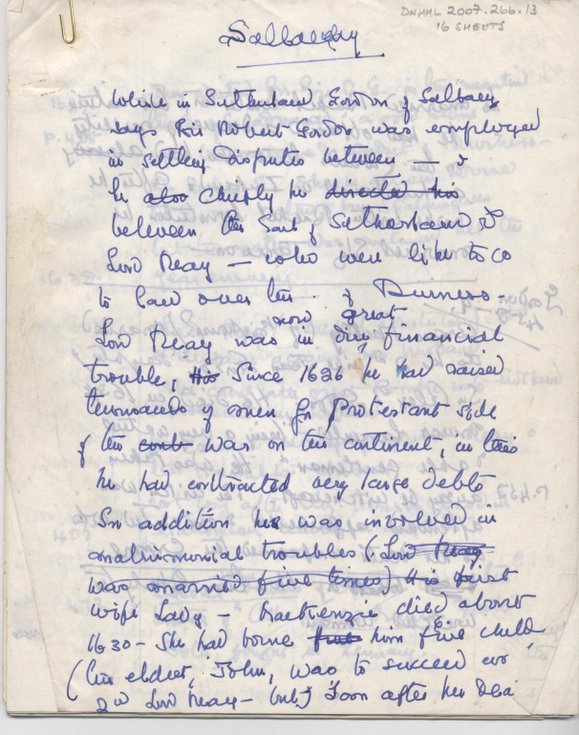 DNHHL 2007.266.13
16 SHEETS
Salbachy
While in Sutherland Gordon of Salbachy
says Sir Robert Gordon was employed
in settling disputes between — &
he also chiefly he directed his
between the Earl of Sutherland &
Lord Reay — who were likely to go
to law over the . of Durness –
Lord Reay was now in great diry financial
trouble, His Since 1626 he had raised
thousands of men for Protestant side
of the cont wars on the continent, in this
he had contracted very large debts
In addition he was involved in
matrimonial troubles (Lord Reay
was married five times) His first
wife Lady — Mackenzie died about
1630 – She had borne him five child
(the eldest, John, was to succeed as
2nd Lord Reay – but) Soon after her Dea